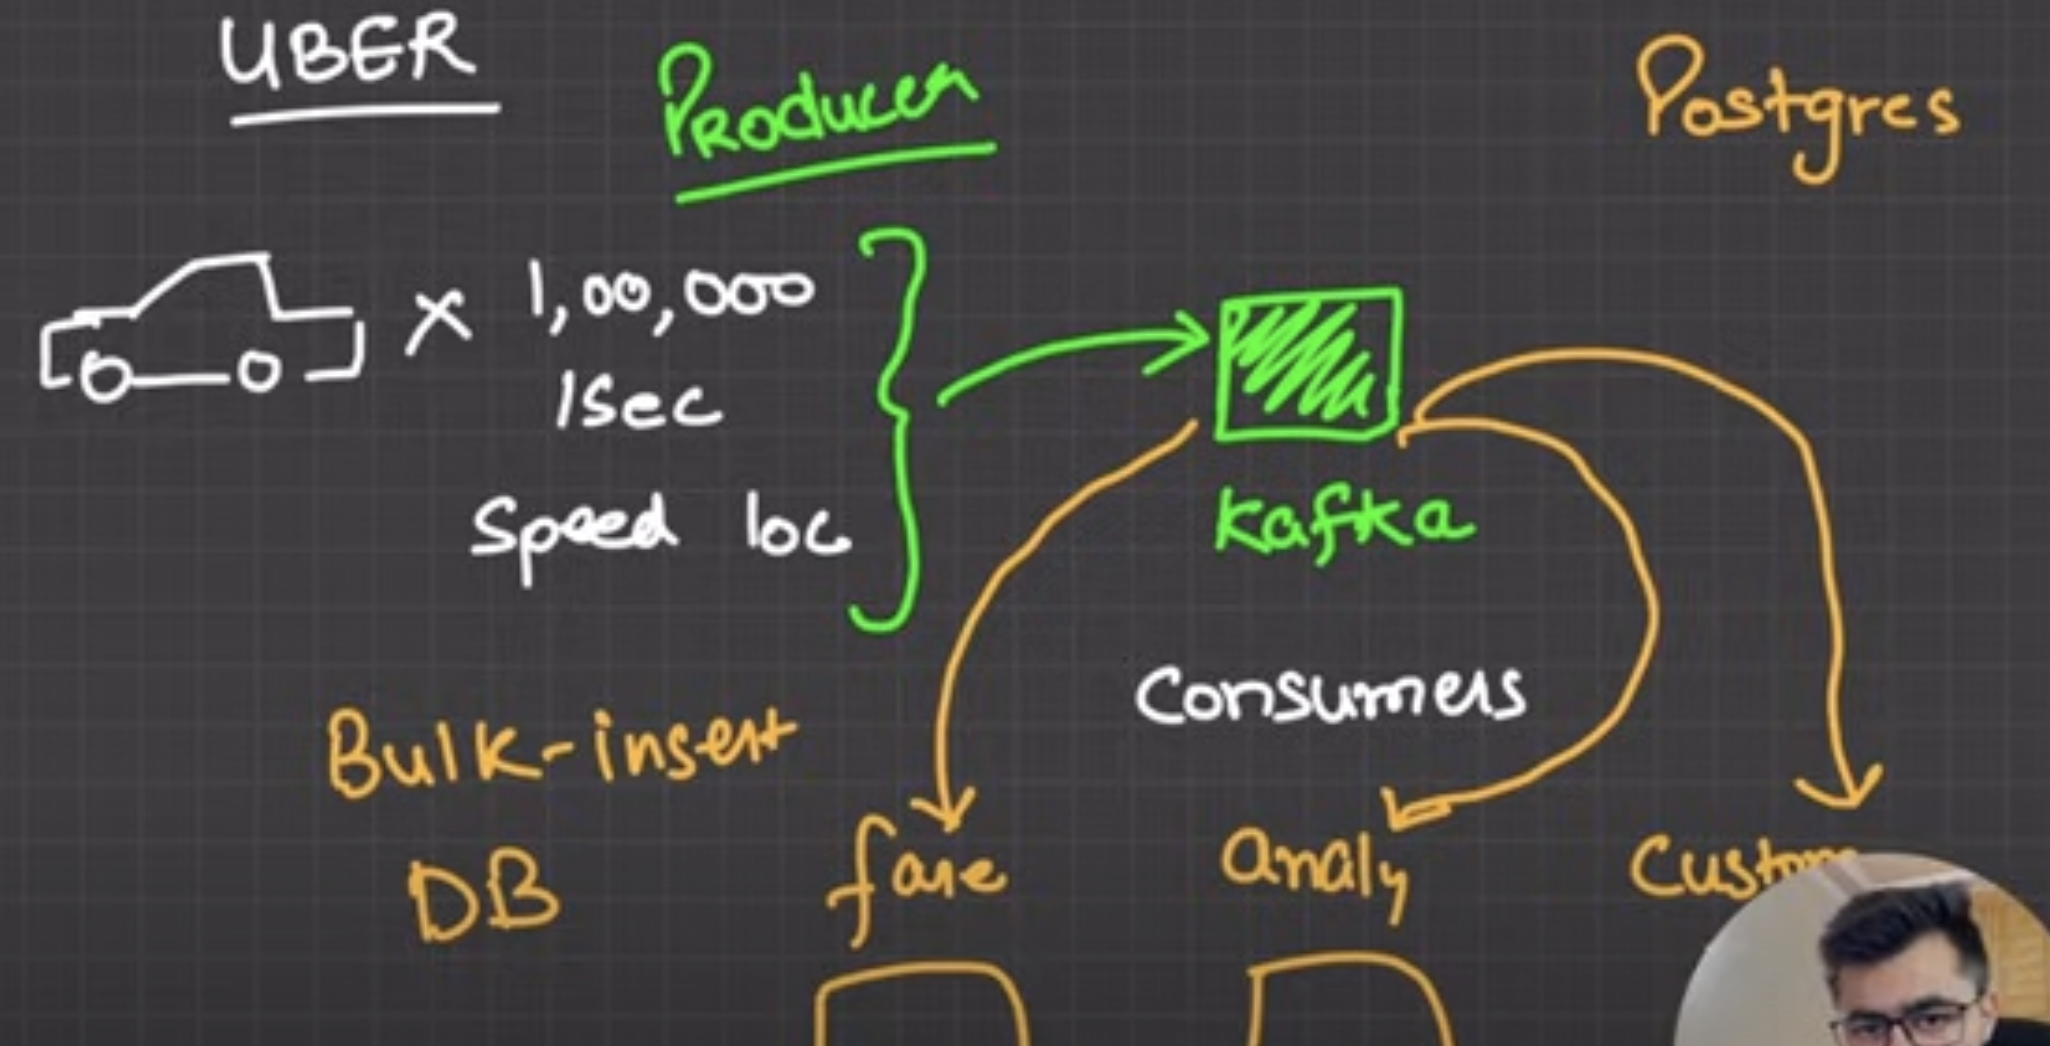 UBER
Producer
Postgres
x 1,00,000
1sec
Speed loc
Kafka
Consumers
Bulk-insert
DB
fare
analy